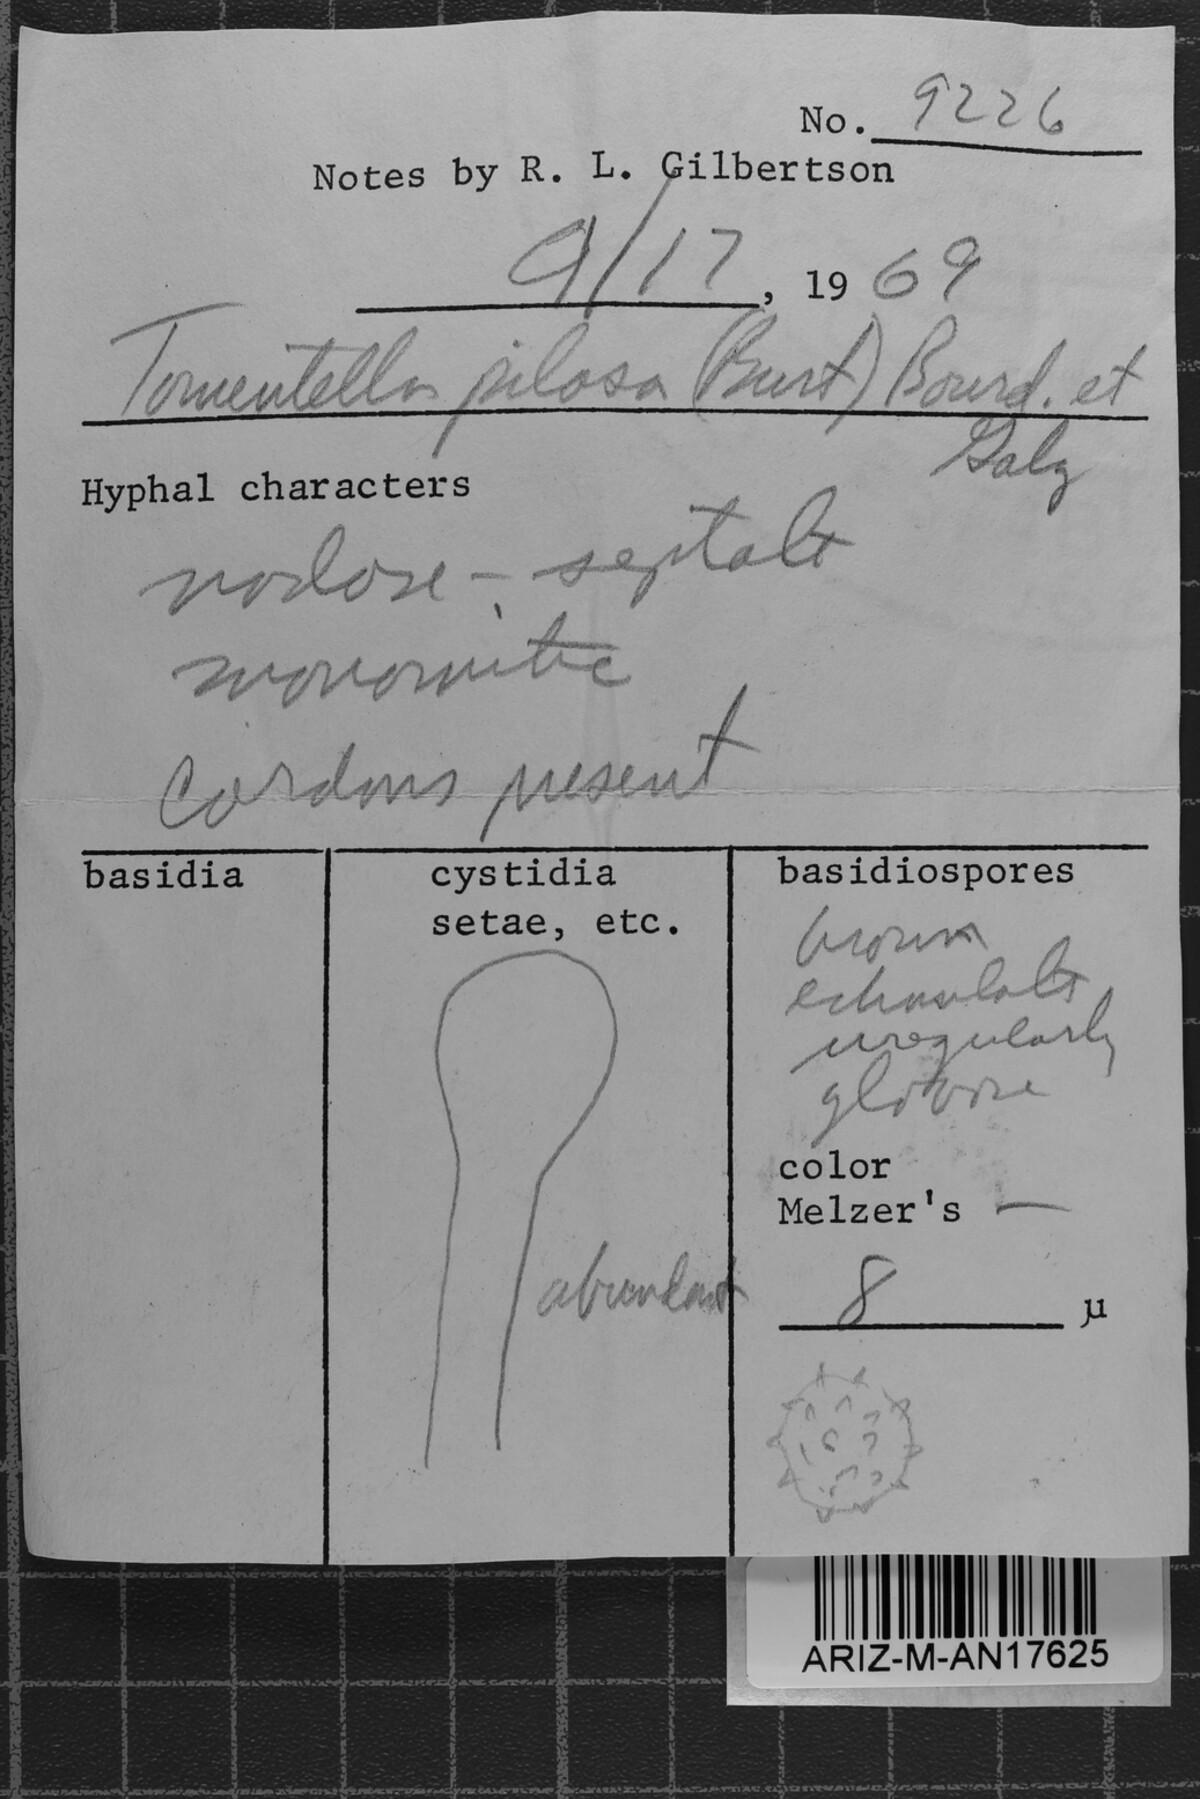 No. 9226
Notes by R. L. Gilbertson
9/17, 19 69
Tomentella pilosa (Burt) Bourd. et
Galz
Hyphal characters
nodose - septate
monomitic
Cordons present
basidia
cystidia
setae, etc.
abundant
basidiospores
brown
echinulate
irregularly
globose
color
Melzer's —
8 µ
ARIZ-M-AN17625